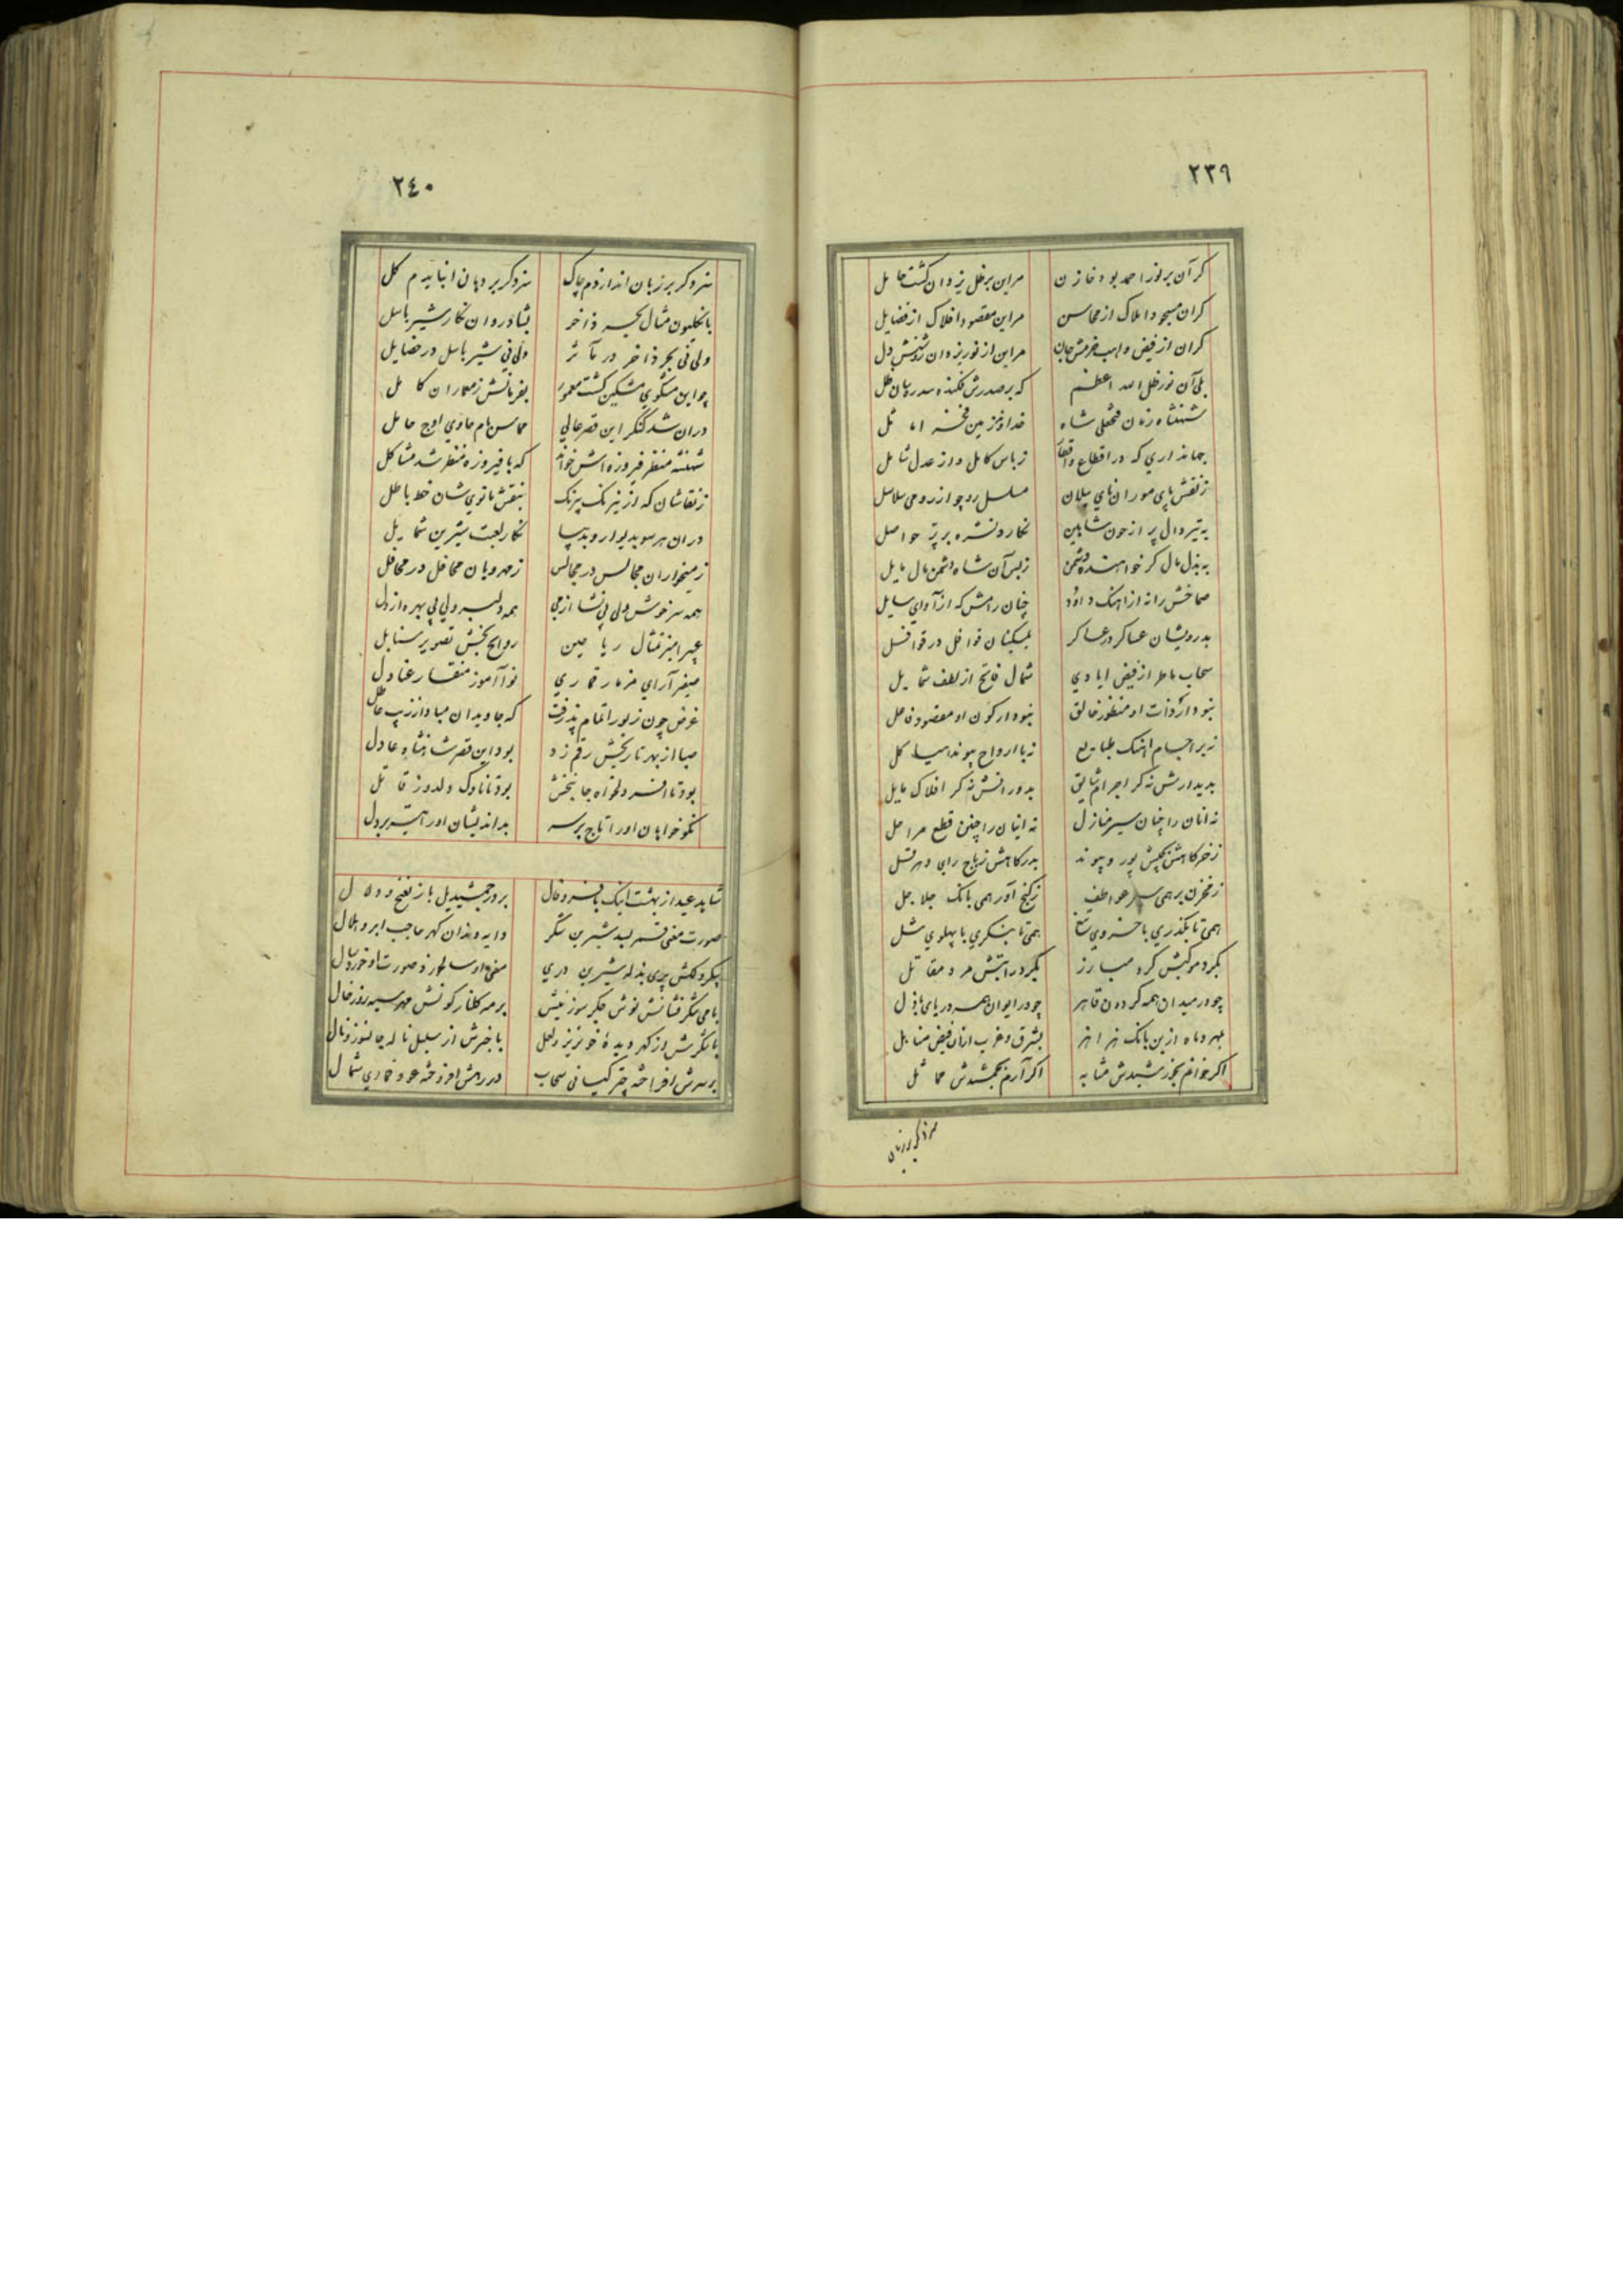 ٢٣٩
کر آن بر نور احمد بود خازن مر این بر ظل یزدان کشت حامل
کر ان مسجود املاک از محاسن مر این مقصود افلاک از فضایل
کر ان از فیض واهب خرمش جان مر این از نور یزدان روشنش دل
بلی آن نور ظل الله اعظم که بر صدرش فکنده سدره سان ظل
شهنشاه زمان فتحعلی شاه خداوند زمین فخر اماثل
جهانداری که در اقطاع واقطار زباس کامل و از عدل شامل
ز نقش پای موران پای پیلان مسلسل رد چو از رومی سلاسل
به تیر دال پر از خون شاهین نکارد نسره بر پر حواصل
به بذل مال کر خواهنده دشمن زبس آن شاه دشمن مال مایل
صماخش را نه از اهنک داود چنان رامش که از آوای سایل
بدرویشان عساکر در عساکر بمسکینان قوافل در قوافل
سحاب ماطر از فیض ایادی شمال فایح از لطف شمایل
نبود ار ذات او منظور خالق نبود ار کون او مقصود فاعل
نه بر اجسام اهنک طبایع نه با ارواح پیوند هیاکل
بدیدارش نه کر اجرام شایق بدورانش نه کر افلاک مایل
نه انان را چنان سیر منازل نه اینان را چنین قطع مراحل
ز خرکاهش بجیش پور و پیوند بدرکاهش ز باج رای و هرقل
ز مخزن بر همی عواطف ز کنج آور همی بانک جلاجل
همی تا بگذری با خسروی همی تا بنکری با پهلوی شل
بکرد موکبش کرد مبارز بکرد رایتش مرد مقاتل
چو در میدان همه کردون قاهر چو در ایوان همه دریای باذل
بهر و ماه ازین بانک هزاهز بشرق و غرب ازان فیض مناهل
اکر خوانم بخورشیدش مشابه اکر آرم بجمشیدش مماثل
سزد کر بر زبان
٢٤٠
سزد کر بر زبان اندازدم چاک سزد کر بر دهان انبایدم کل
بانکلیون مثال بحر ذاخر بشادروان نکار شیر باسل
ولی نی بحر ذاخر در مآثر ولی نی شیر باسل در خصایل
چو این مشکوی مشکین کشت معمور بفرمانش ز معماران کامل
دران شد کنکر این قصر عالی مماس بام حاوی اوج حامل
شهنشه منظر فیروزه اش خواند که با فیروزه منظر شد مشاکل
ز نقاشان که از نیرنک بیرنک بنقش مانوی شان خط باطل
دران هر سو بدیوار و بدیبا نکار لعبت شیرین شمایل
ز میخواران مجالس در مجالس ز مهرویان محافل در محافل
همه سرخوش ولی بی نشا از می همه دلبر ولی بی بهره از دل
عبیر امیز تمثال ریاحین روایح بخش تصویر سنابل
صفیر آرای مزمار قماری نوا آموز منقار عنادل
غرض چون زیور اتمام پذرفت که جاویدان مبادا از زیب عاطل
صبا از بهر تاریخش رقم زد بود این قصر شاهنشاه عادل
بود تا افسر دلخواه جانبخش بود تا ناوک دلدوز قاتل
نکو خواهان او را تاج بر سر بداندیشان او را تیر بر دل
شاید عید از بهشت اینک بافر و فال بر در جمشید یل باز بغنج و دلال
صورت معنی قسر لبد شیرین شکر دایه رندان کهر حاجب ابرو هلال
پیکر دلکش پری بذله شیرین دری
با می شکرفشانش نوش جکر سوز نیش بر مه کلنار کونش مهر سیه روز خال
با شکرش از کهر دیده خونریز لعل با خبرش از سلسل ناله جانسوز نال
بر سرش افراخته چتر کیانی سحاب در رهش افروخته عود قماری شمال